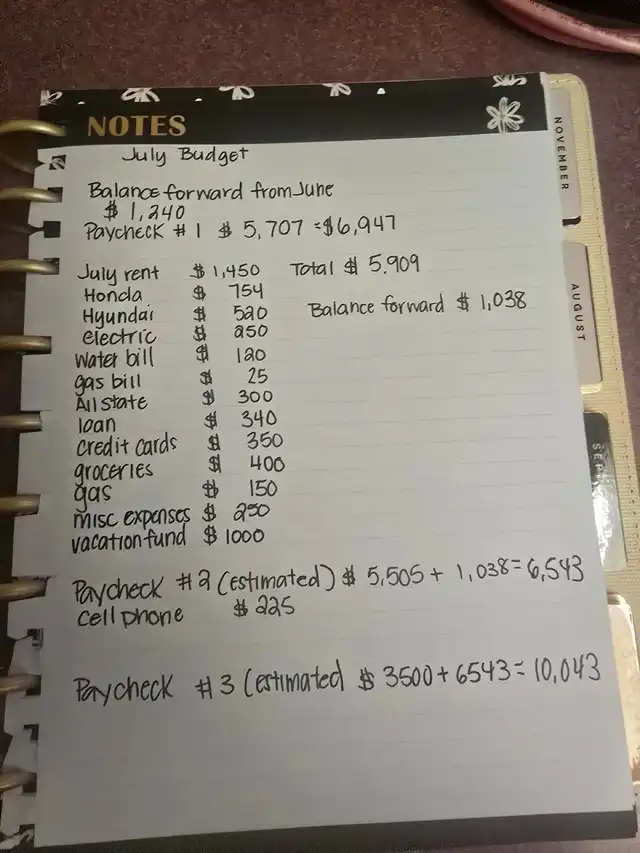 NOTES
July Budget
Balance forward from June
$ 1,240
Paycheck #1 $ 5,707 =$6,947
July rent $ 1,450 Total $ 5.909
Honda $ 754
Hyundai $ 520 Balance forward $ 1,038
electric $ 250
water bill $ 120
gas bill $ 25
Allstate $ 300
loan $ 340
credit cards $ 350
groceries $ 400
gas $ 150
misc expenses $ 250
vacation fund $ 1000
Paycheck #2 (estimated) $ 5,505 + 1,038= 6,543
cell phone $ 225
Paycheck #3 (estimated $ 3500+6543= 10,043
NOVEMBER
AUGUST